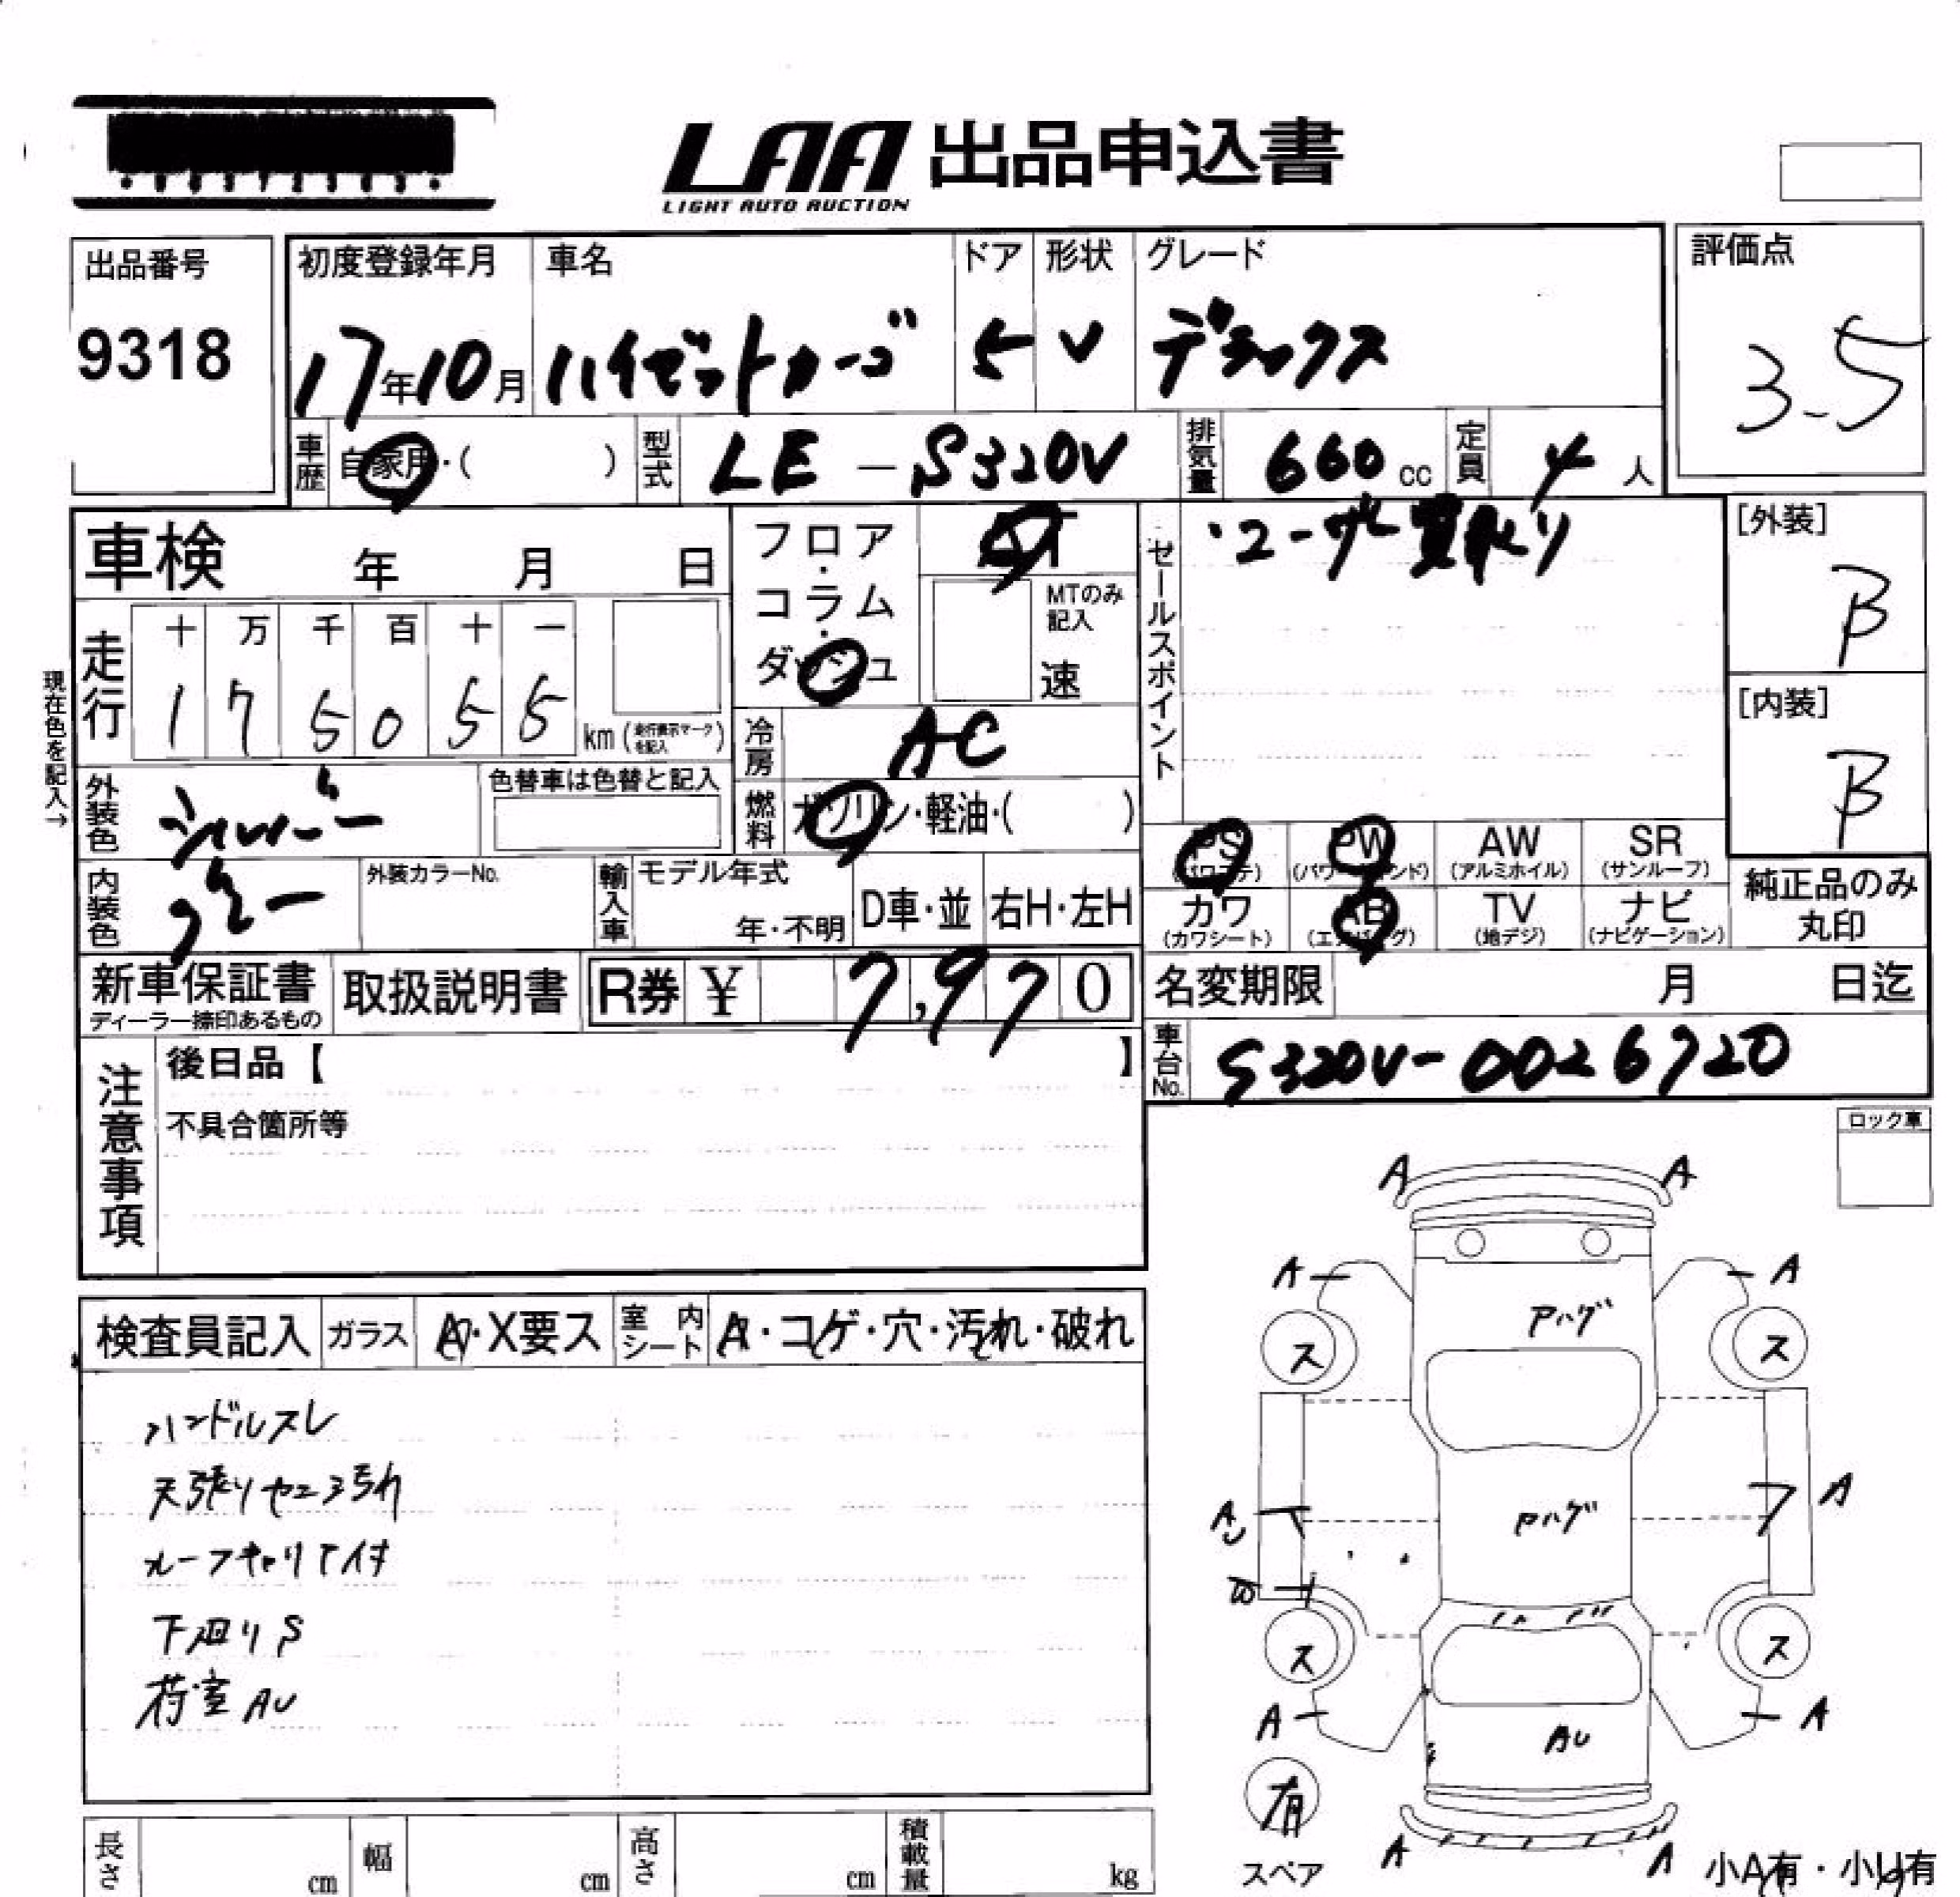 LAA 出品申込書
LIGHT AUTO AUCTION
出品番号
9318
初度登録年月 車名 ドア 形状 グレード
17年10月 ハイゼットカーゴ 5 V デラックス
評価点
3.5
車歴 自家用・( ) 型式 LE-S320V 排気量 660cc 定員 4人
車検 年 月 日
フロア・コラム・ダッシュ AT
MTのみ記入
速
セールスポイント
・ユーザー買取り
[外装]
B
[内装]
B
現在色を記入→
走行
十 万 千 百 十 一
1 7 5 0 5 5 km(走行表示マークを記入)
冷房 AC
外装色 シルバー 色替車は色替と記入
燃料 ガソリン・軽油・( )
内装色 グレー 外装カラーNo. 輸入車 モデル年式 年・不明 D車・並 右H・左H
PS (パワステ) PW (パワーウィンド) AW (アルミホイル) SR (サンルーフ)
カワ (カワシート) AB (エアバッグ) TV (地デジ) ナビ (ナビゲーション)
純正品のみ丸印
新車保証書 ディーラー捺印あるもの 取扱説明書 R券 ¥ 7,970
名変期限 月 日迄
車台No. S320V-0026720
注意事項
後日品【 】
不具合箇所等
ロック車
検査員記入 ガラス A・X要ス 室内シート A・コゲ・穴・汚れ・破れ
ハンドルスレ
天張りセンヨ汚れ
ルーフキャリア付
下廻りS
荷室AU
A A
A A
アハゲ
ス ス
A
アハゲ
ス ス
A A
AU
有
スペア
A A
小A有・小U有
長さ cm 幅 cm 高さ cm 積載量 kg